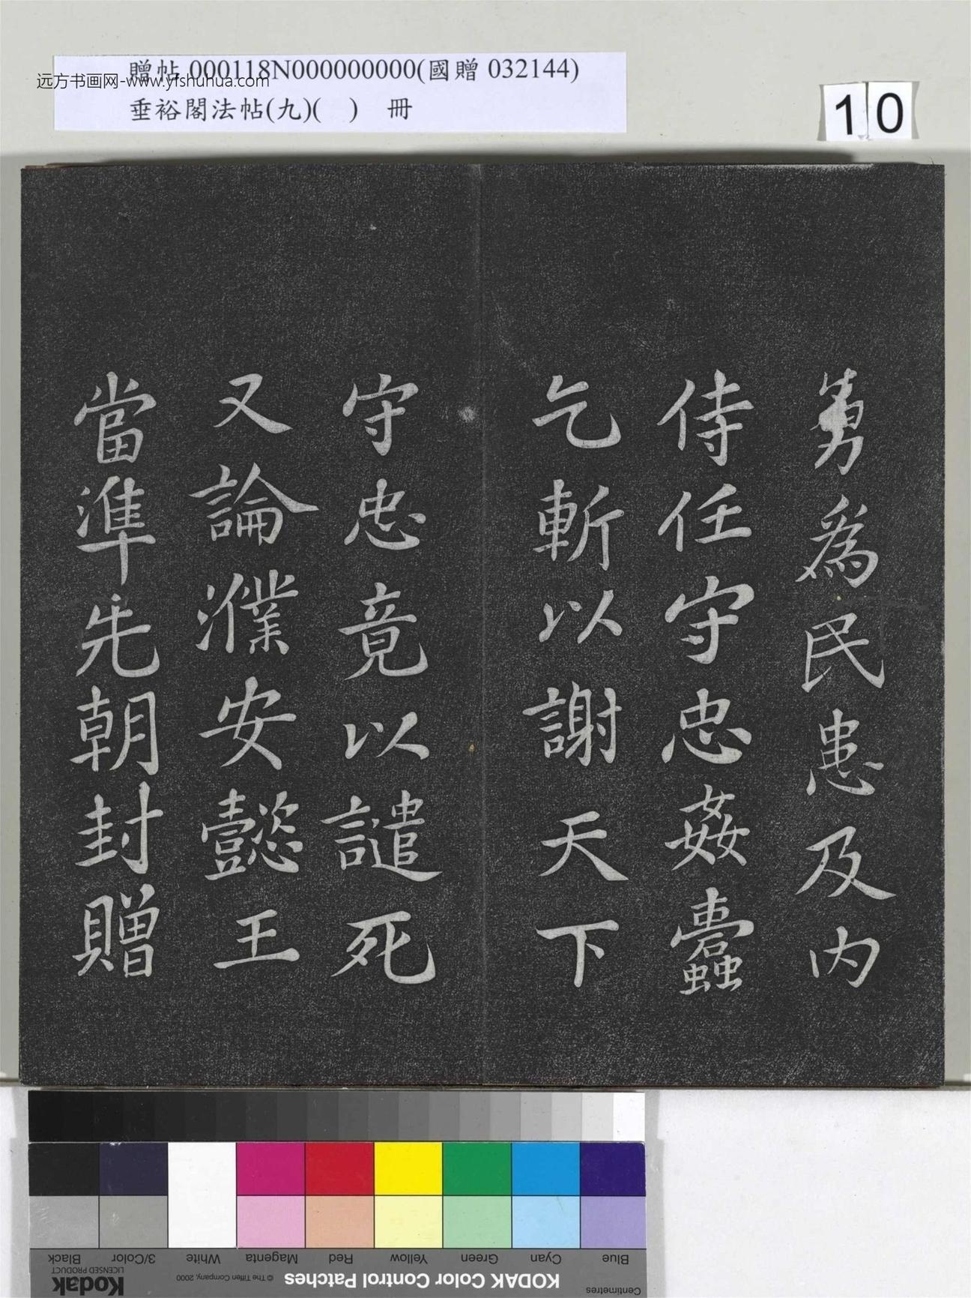 贈帖 000118N000000000(國贈 032144)
远方书画网-www.yishuhua.com
垂裕閣法帖(九)(　)　冊
10
勇為民患及内
侍任守忠姦蠹
乞斬以謝天下
守忠竟以譴死
又論濮安懿王
當準先朝封贈
Black
3/Color
White
Magenta
Red
Yellow
Green
Cyan
Blue
LICENSED PRODUCT
Kodak
© The Tiffen Company, 2000
KODAK Color Control Patches
Centimetres